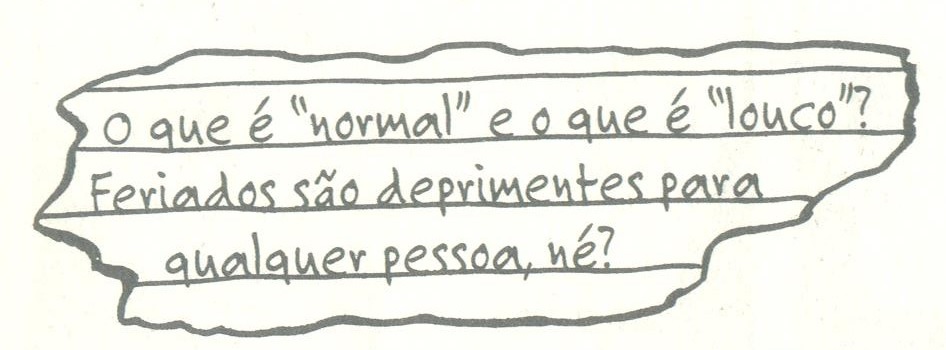 O que é "normal" e o que é "louco"?
Feriados são deprimentes para
qualquer pessoa, né?